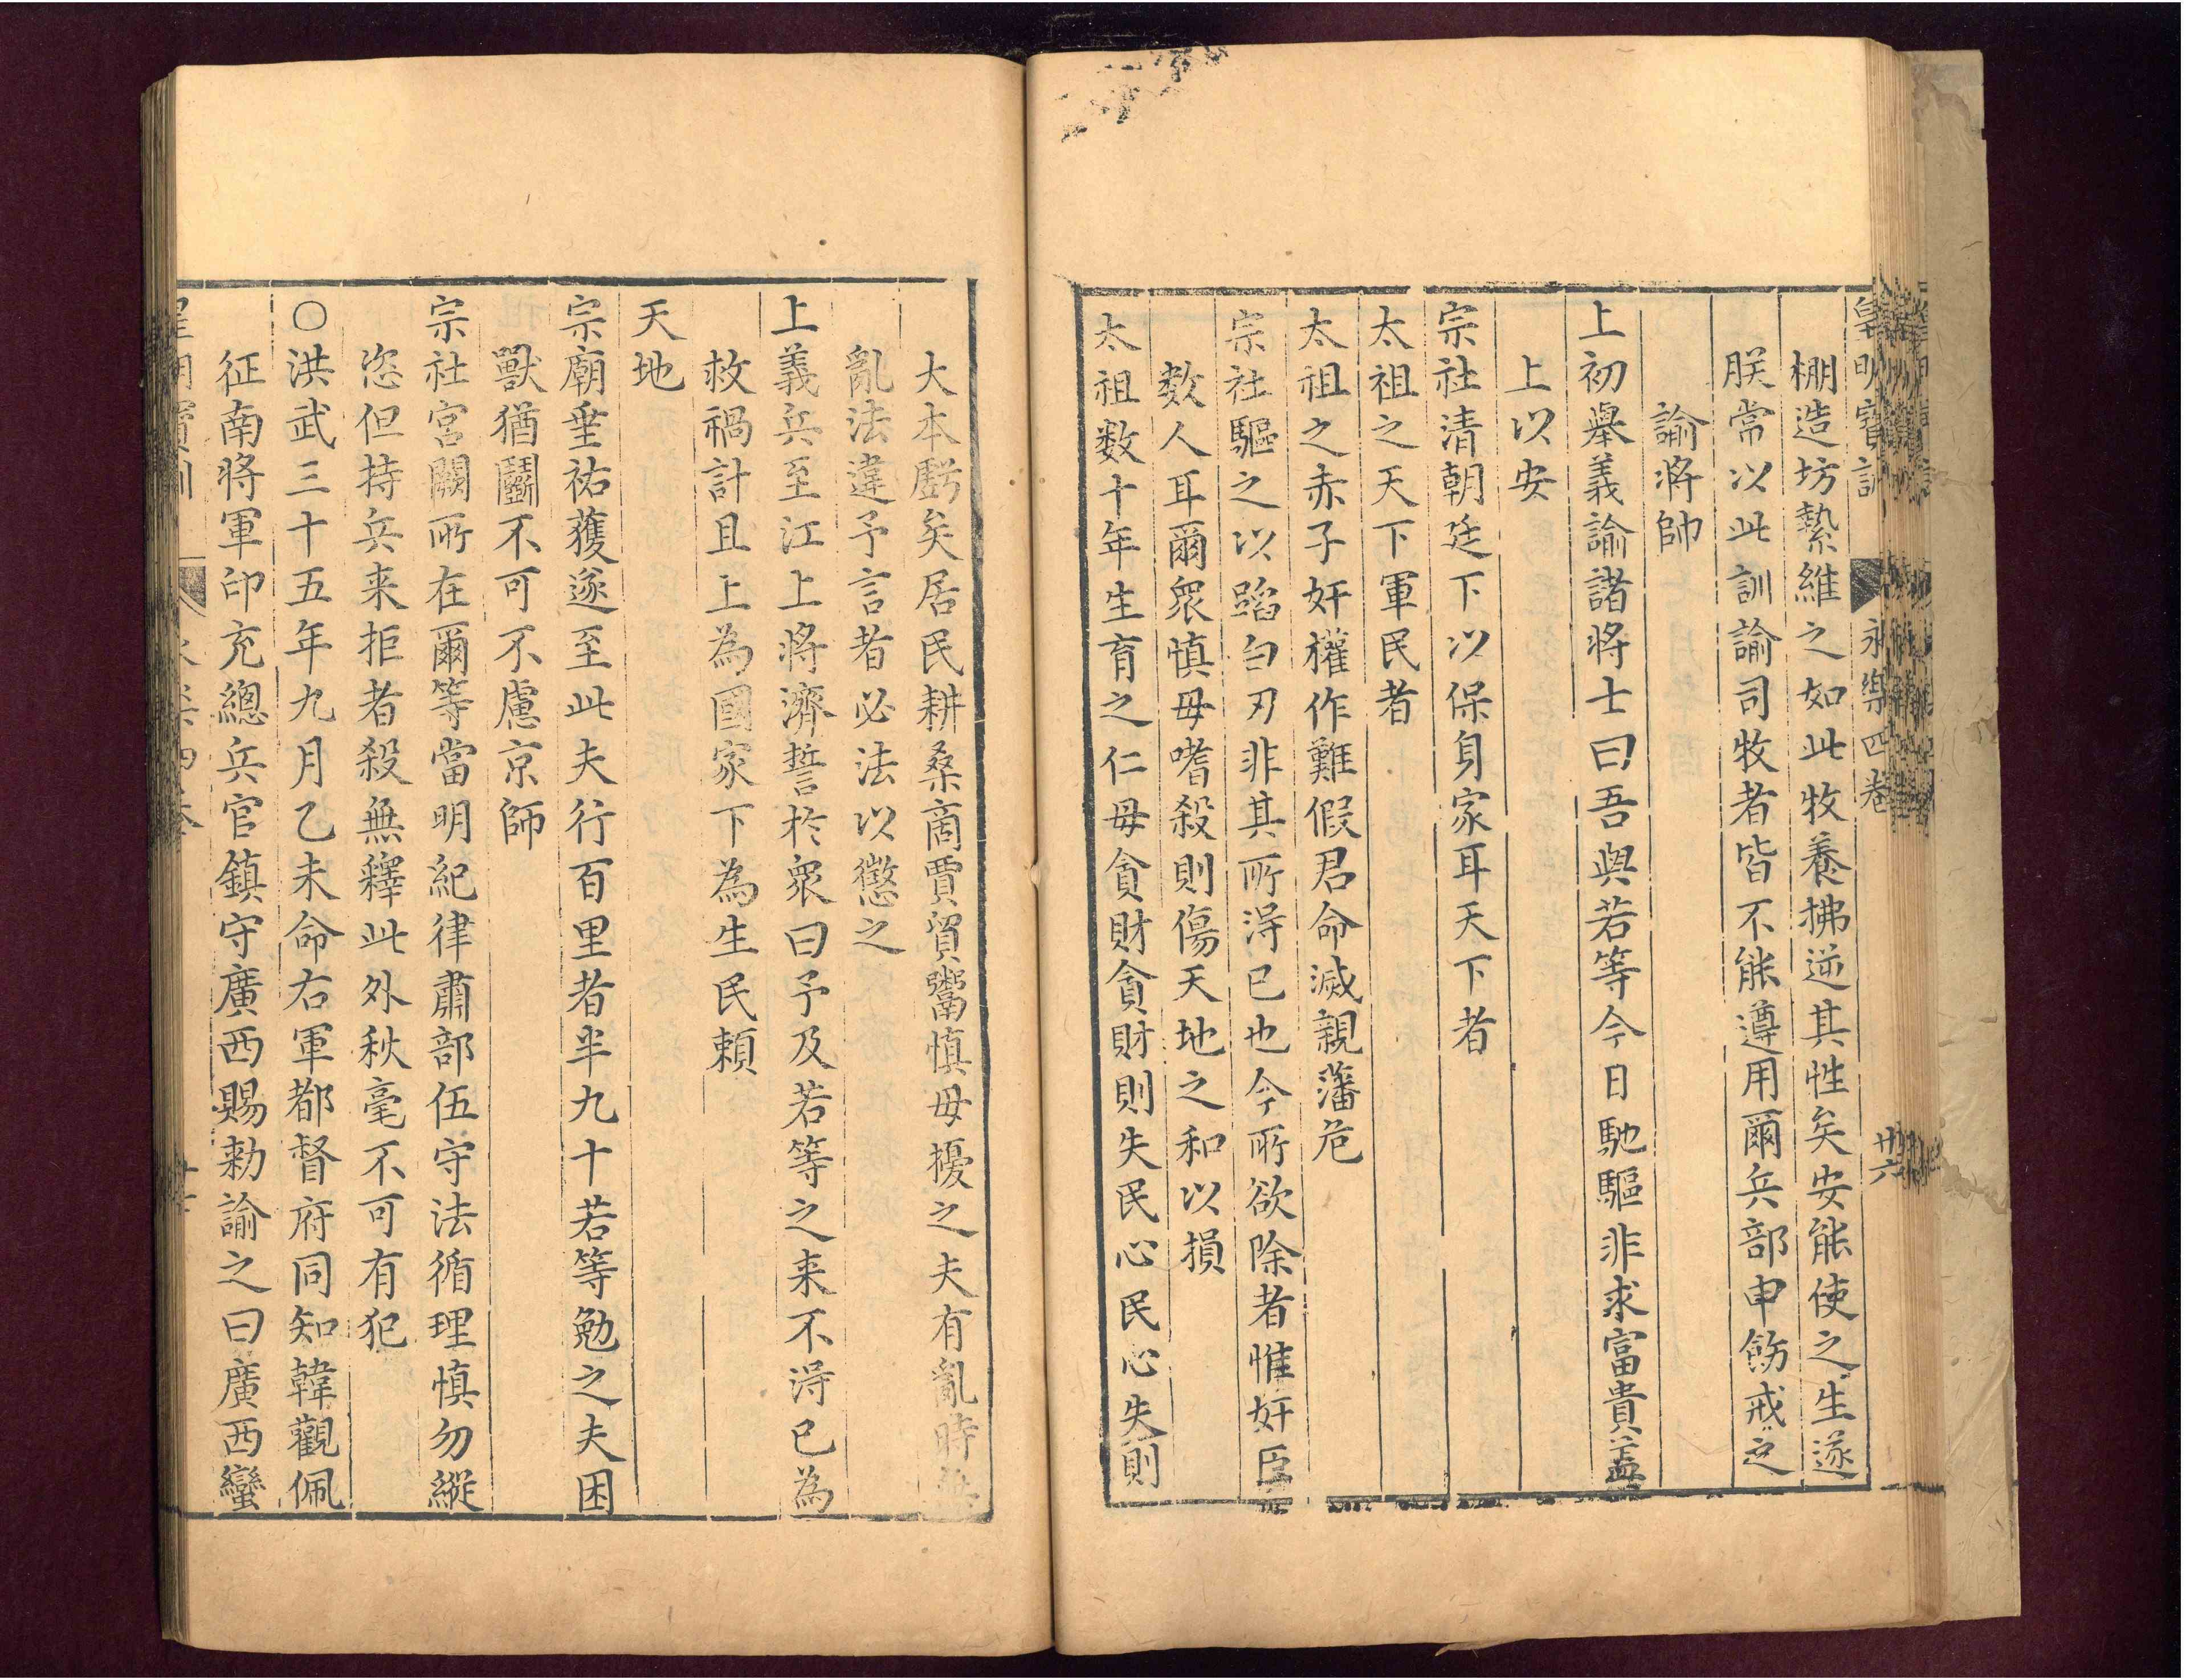 皇明寶訓　永樂四卷　廿六
棚造坊縶維之如此牧養拂逆其性矣安能使之生遂
朕常以此訓諭司牧者皆不能遵用爾兵部申飭戒之
諭將帥
上初舉義諭諸將士曰吾與若等今日馳驅非求富貴蓋
上以安
宗社清朝廷下以保身家耳天下者
太祖之天下軍民者
太祖之赤子奸權作難假君命滅親藩危
宗社驅之以蹈白刃非其所得已也今所欲除者惟奸臣
数人耳爾衆慎毋嗜殺則傷天地之和以損
太祖数十年生育之仁毋貪財貪財則失民心民心失則
大本虧矣居民耕桑商賈貿鬻慎毋擾之夫有亂時無
亂法違予言者必法以懲之
上義兵至江上將濟誓於衆曰予及若等之来不得已為
救禍計且上為國家下為生民賴
天地
宗廟垂祐獲遂至此夫行百里者半九十若等勉之夫困
獸猶鬬不可不慮京師
宗社宮闕所在爾等當明紀律肅部伍守法循理慎勿縱
恣但持兵来拒者殺無釋此外秋毫不可有犯
○洪武三十五年九月乙未命右軍都督府同知韓觀佩
征南將軍印充總兵官鎮守廣西賜勅諭之曰廣西蠻